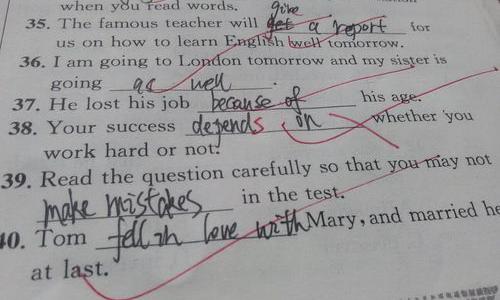 when you read words.
give
35. The famous teacher will get a report for
us on how to learn English well tomorrow.
36. I am going to London tomorrow and my sister is
going as well.
37. He lost his job because of his age.
38. Your success depends on whether you
work hard or not.
39. Read the question carefully so that you may not
make mistakes in the test.
40. Tom fell in love with Mary, and married he
at last.